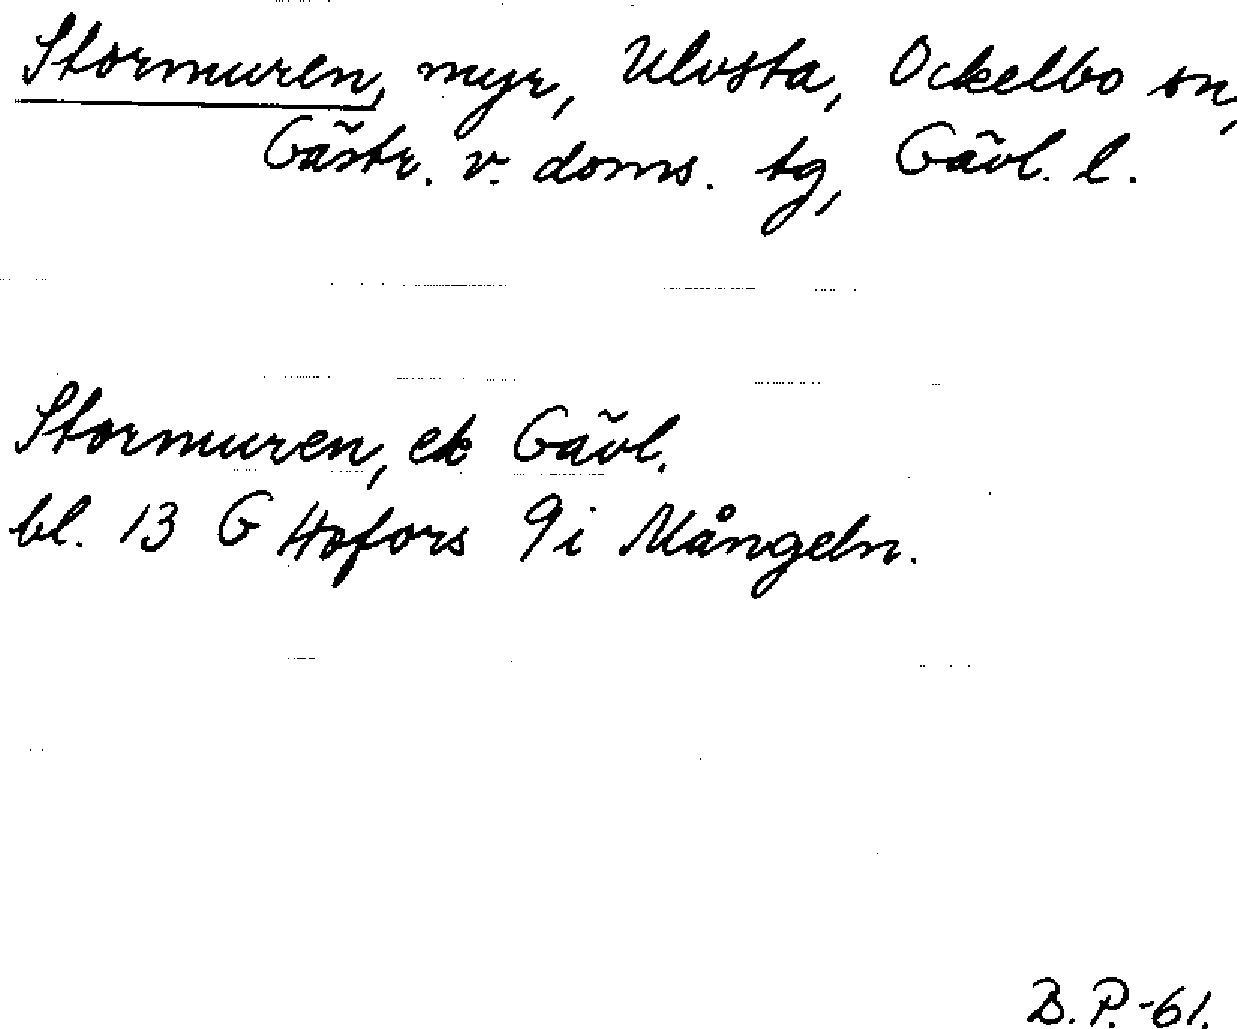 Stormuren, myr, Ulvsta, Ockelbo sn,
Gästr. v. doms. tg, Gävl. l.
Stormuren, ek Gävl.
bl. 13 G Hofors 9i Mångeln.
B. P. -61.